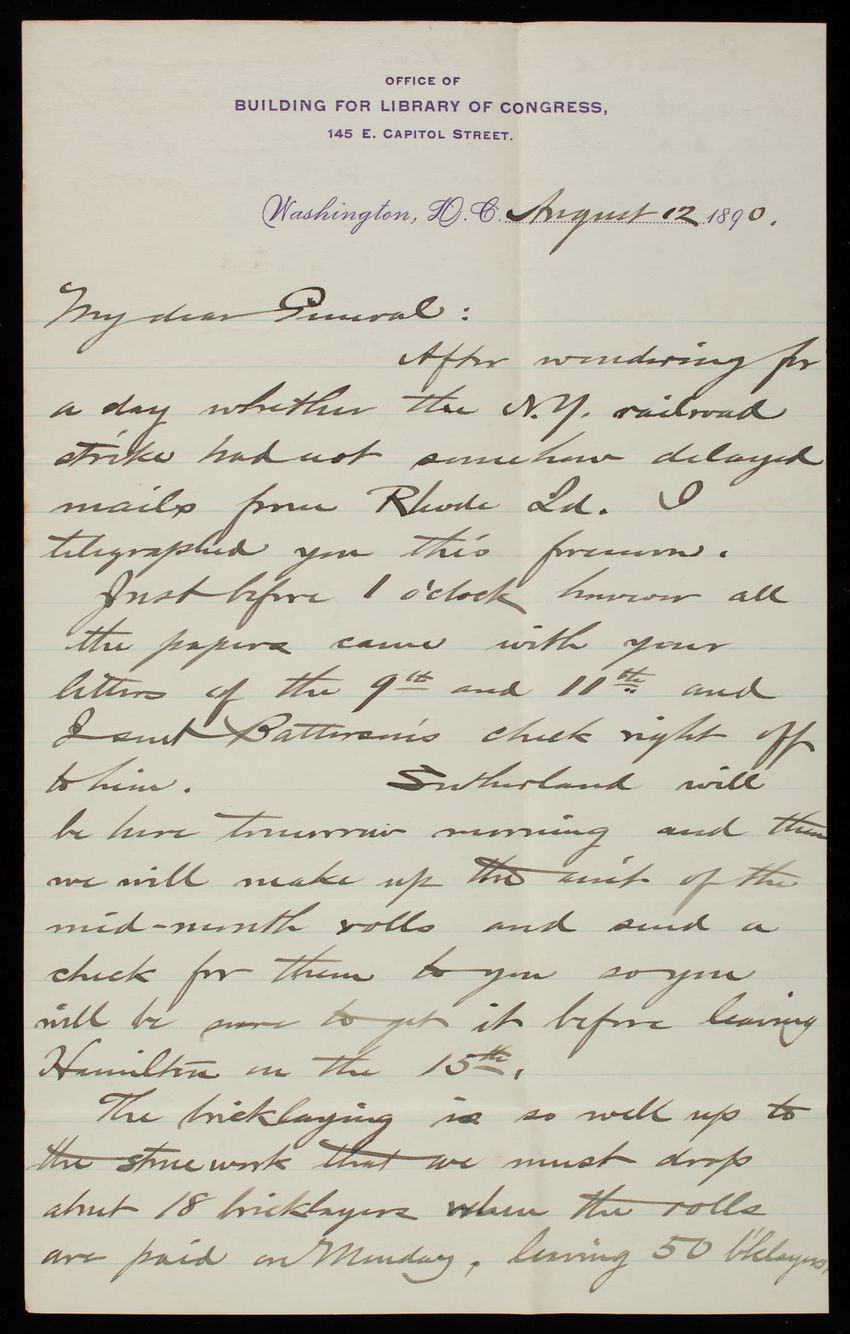 OFFICE OF
BUILDING FOR LIBRARY OF CONGRESS,
145 E. CAPITOL STREET.
Washington, D.C. August 12 1890.
My dear General:
After wondering for
a day whether the N.Y. railroad
strike had not somehow delayed
mails from Rhode Id. I
telegraphed you this forenoon.
Just before 1 o'clock however all
the papers came with your
letters of the 9th and 11th and
I sent Batterson's check right off
to him. Sutherland will
be here tomorrow morning and then
we will make up the am't of the
mid-month rolls and send a
check for them to you so you
will be sure to get it before leaving
Hamilton on the 15th.
The bricklaying is so well up to
the stonework that we must drop
about 18 bricklayers when the rolls
are paid on Monday, leaving 50 b'klayers,